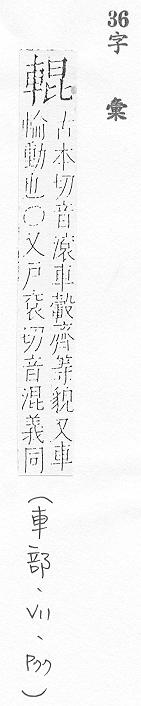 36
字彙
輥
古本切音滾車轂齊等貌又車
輪動也○又戶袞切音混義同
(車部、VII、P77)